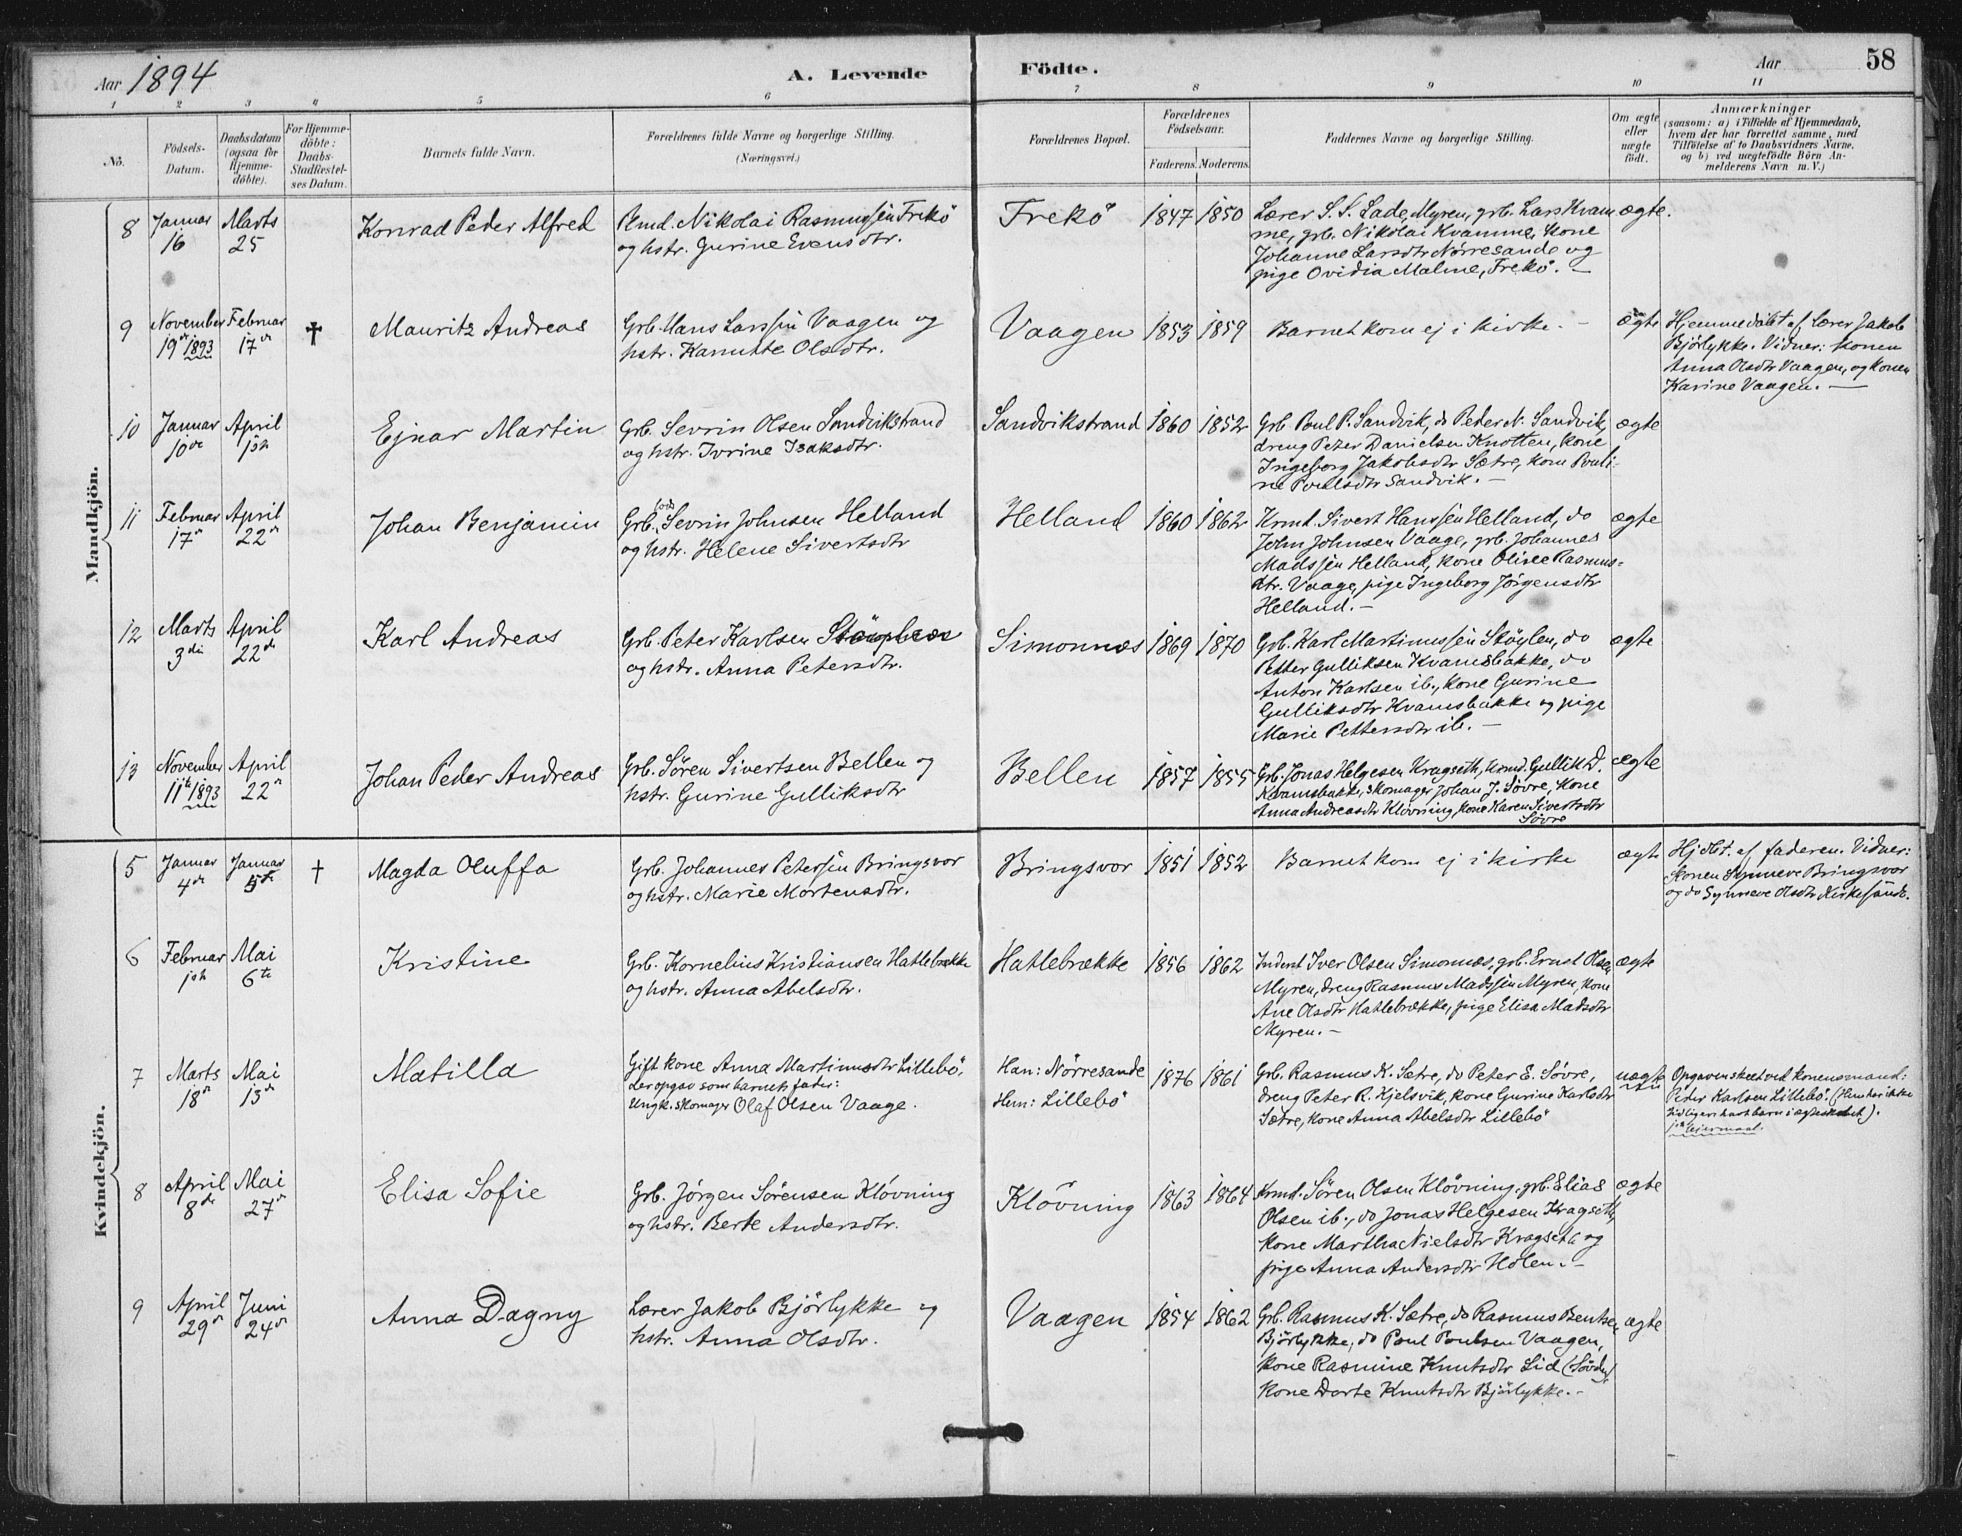 Aar 1894
A. Levende
Födte.
Aar
58
1 2 3 4 5 6 7 8 9 10 11
No.
Födsels-
Datum.
Daabsdatum
(ogsaa for
Hjemme-
döbte).
For Hjemme-
döbte:
Daabs-
Stadfæstel-
ses Datum.
Barnets fulde Navn.
Forældrenes fulde Navne og borgerlige Stilling.
(Næringsvei.)
Forældrenes Bopæl.
Forældrenes
Födselsaar.
Faderens. Moderens.
Faddernes Navne og borgerlige Stilling.
Om ægte
eller
uægte
födt.
Anmærkninger
(saasom: a) i Tilfælde af Hjemmedaab,
hvem der har forrettet samme, med
Tilföielse af to Daabsvidners Navne,
og b) ved uægtefödte Börn An-
melderens Navn m.V.)
Mandkjön.
8
Januar
16
Marts
25
Konrad Peder Alfred
Nikolai Rasmussen Frekö
og hstr. Gurine Evensdtr.
Frekö
1847 1850
Lærer S. S. Lade, Myren, grb. Lars Kvam
me, grb. Nikolai Kvamme, kone
Johanne Larsdtr Nörresande og
pige Ovidia Malme, Frekö. –
ægte.
9
November
19de 1893
Februar
17de
†
Mauritz Andreas
Grb. Hans Larssen Vaagen og
hstr. Kanutte Olsdtr.
Vaagen
1853 1859
Barnet kom ej i kirke. –
ægte
Hjemmedöbt af lærer Jakob
Björlykke. Vidner: konen
Anna Olsdtr Vaagen, og konen
Karine Vaagen. –
10
Januar
10de
April
15de
Ejnar Martin
Grb. Sevrin Olsen Sandvikstrand
og hstr. Ivrine Isaksdtr.
Sandvikstrand
1860 1852
Grb Poul P. Sandvik, do Peder N. Sandvik,
dreng Peter Danielsen Knotten, kone
Ingeborg Jakobsdtr Sætre, kone Pouli-
ne Poulsdtr Sandvik. –
ægte
11
Februar
17de
April
22de
Johan Benjamin
Grb. Sevrin Johnsen Helland
og hstr. Helene Sivertsdtr
Helland
1860 1862
Krmd. Sivert Hanssen Helland, do
John Johnsen Vaage, grb. Johannes
Madssen Helland, kone Olivee Rasmus-
dtr. Vaage, pige Ingeborg Jörgensdtr
Helland. –
ægte
12
Marts
3die
April
22de
Karl Andreas
Grb. Peter Karlsen
og hstr. Anna Petersdtr.
Simonnæs
1869 1870
Grb. Karl Martinussen Stöylen, do
Petter Gulliksen Kvamsbakke, do
Anton Karlsen ib., kone Gurine
Gulliksdtr Kvamsbakke og pige
Marie Pettersdtr ib. –
ægte
13
November
11te 1893
April
22de
Johan Peder Andreas
Grb. Sören Sivertsen Bellen og
hstr. Gurine Gulliksdtr
Bellen
1857 1855
Grb. Jonas Helgesen Kragseth, krmd. Gullik D.
Kvamsbakke, skomager Johan J. Sövre, kone
Anna Andreasdtr Klövning, kone Karen Sivertsdtr
Sövre
ægte
Kvindekjön.
5
Januar
4de
Januar
5te
†
Magda Oluffa
Grb. Johannes Petersen Bringsvor
og hstr. Marie Mortensdtr.
Bringsvor
1851 1852
Barnet kom ej i kirke
ægte
Hjdbt. af faderen. Vidner:
Konen Synneve Bringsvor
og do Synneve Olsdtr Kirkesunde.
6
Februar
Mai
6te
Kristine
Grb. Kornelius Kristiansen Hatlebrække
og hstr. Anna Abelsdtr.
Hatlebrække
1856 1862
Inderst Iver Olsen Simonnæs, grb. Ernst Olsen
Myren, dreng Rasmus Madssen Myren, kone
Ane Olsdtr Hatlebrække, pige Elisa Madsdtr
Myren. –
ægte
7
Marts
18de
Mai
13de
Matilla
Gift kone Anna Martinusdtr Lillebö,
der opgav som barnets fader:
Ungk. skomager Olaf Olsen Vaage.
Han: Nörresande
Hun: Lillebö
1876 1861
Grb. Rasmus K. Sætre, do Peter E. Sövre,
dreng Peter R. Kjelsvik, kone Gurine Karlsdtr
Sætre, kone Anna Abelsdtr Lillebö
uægte
Opgaven skeet ved konens mand:
Peder Karlsen Lillebö. (Hun har ikke
tidligere havt barn i ægteskabet).
leiermaal.
8
April
8de
Mai
27de
Elisa Sofie
Grb. Jörgen Sörensen Klövning
og hstr. Berte Andersdtr.
Klövning
1863 1864
Krmd. Sören Olsen Klövning, grb. Elias
Olsen ib., do Jonas Helgesen Kragseth,
kone Martha Nielsdtr Kragseth og
pige Anna Andersdtr Holen. –
ægte
9
April
29de
Juni
24de
Anna Dagny
Lærer Jakob Björlykke og
hstr. Anna Olsdtr.
Vaagen
1854 1862
Grb. Rasmus K. Sætre, do Rasmus Bentsen
Björlykke, do Poul Poulsen Vaagen,
kone Rasmine Knutsdtr Lid (Sövde)
kone Dorte Knutsdtr Björlykke. –
ægte